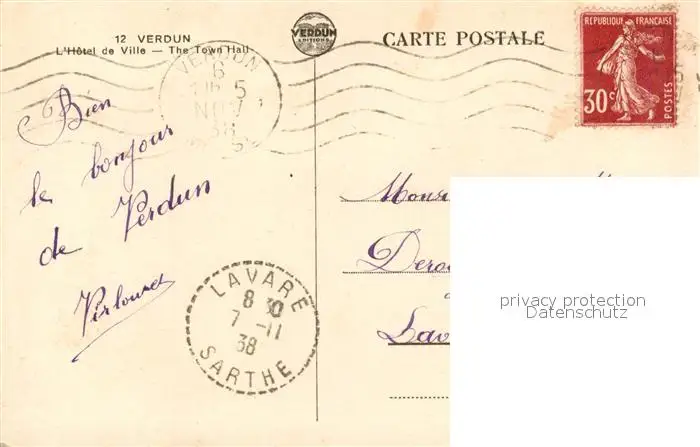 12 VERDUN
L'Hôtel de Ville — The Town Hall
VERDUN
EDITIONS
CARTE POSTALE
REPUBLIQUE FRANÇAISE
30c
POSTES
VERDUN
6
NOV
38
Bien
le bonjour
de Verdun
Virlouvet
LAVARE
8 30
7 -11
38
SARTHE
Monsi
Dero
Lav
privacy protection
Datenschutz